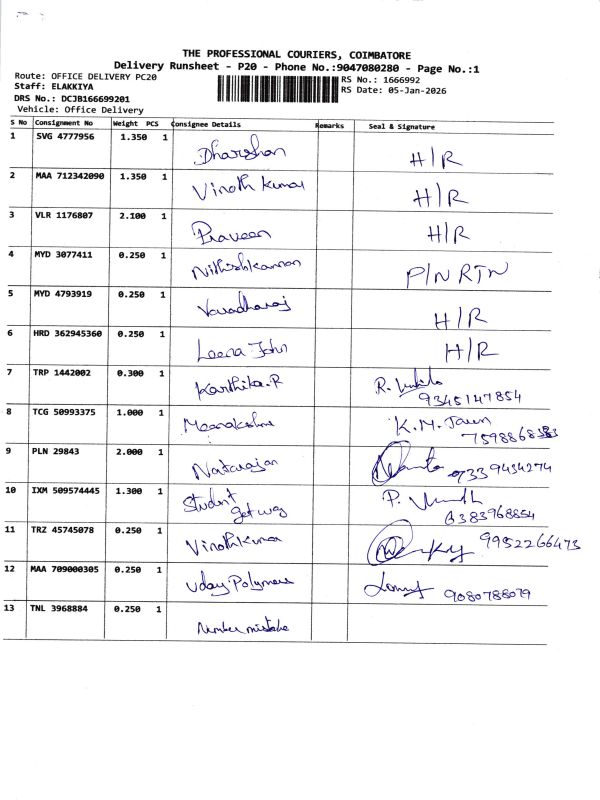 THE PROFESSIONAL COURIERS, COIMBATORE
Delivery Runsheet - P20 - Phone No.:9047080280 - Page No.:1
Route: OFFICE DELIVERY PC20
Staff: ELAKKIYA
DRS No.: DCJB166699201
Vehicle: Office Delivery
RS No.: 1666992
RS Date: 05-Jan-2026
S No Consignment No Weight PCS Consignee Details Remarks Seal & Signature
1 SVG 4777956 1.350 1 Dharshan H/R
2 MAA 712342090 1.350 1 Vinoth Kumar H/R
3 VLR 1176807 2.100 1 Praveen H/R
4 MYD 3077411 0.250 1 Nithishkannan P/N RTN
5 MYD 4793919 0.250 1 Varadharaj H/R
6 HRD 362945360 0.250 1 Leena John H/R
7 TRP 1442002 0.300 1 Karthika.R R.
9345147854
8 TCG 50993375 1.000 1 Meenakshi K.M.
9 PLN 29843 2.000 1 Natarajan 97339434274
10 IXM 509574445 1.300 1 Student get way P.
6383968854
11 TRZ 45745078 0.250 1 Vinothkumar 9952266473
12 MAA 709000305 0.250 1 Uday Polymers 9080788079
13 TNL 3968884 0.250 1 Number mistake